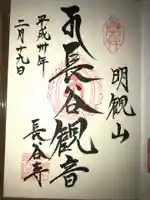 明観山
長谷観音
長谷寺
平成卅年
二月十九日